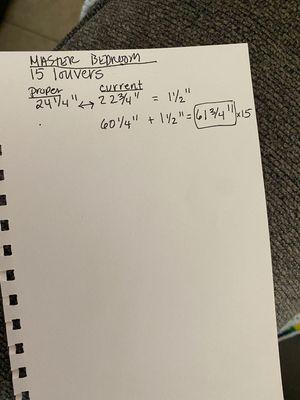 MASTER BEDROOM
15 louvers
proper current
24 1/4" ↔ 22 3/4" = 1 1/2"
60 1/4" + 1 1/2" = 61 3/4" x 15